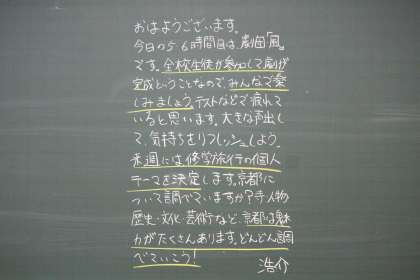 おはようございます。
今日の5 6時間目は、劇団「風」
です。全校生徒が参加して劇が
完成ということなので、みんなで楽
しみましょう。テストなどで疲れて
いると思います。大きな声出し
て、気持ちをリフレッシュしよう。
来週には修学旅行の個人
テーマを決定します。京都に
ついて調べていますか？寺 人物
歴史・文化 芸術など、京都は魅
力がたくさんあります。どんどん調
べていこう！
浩介